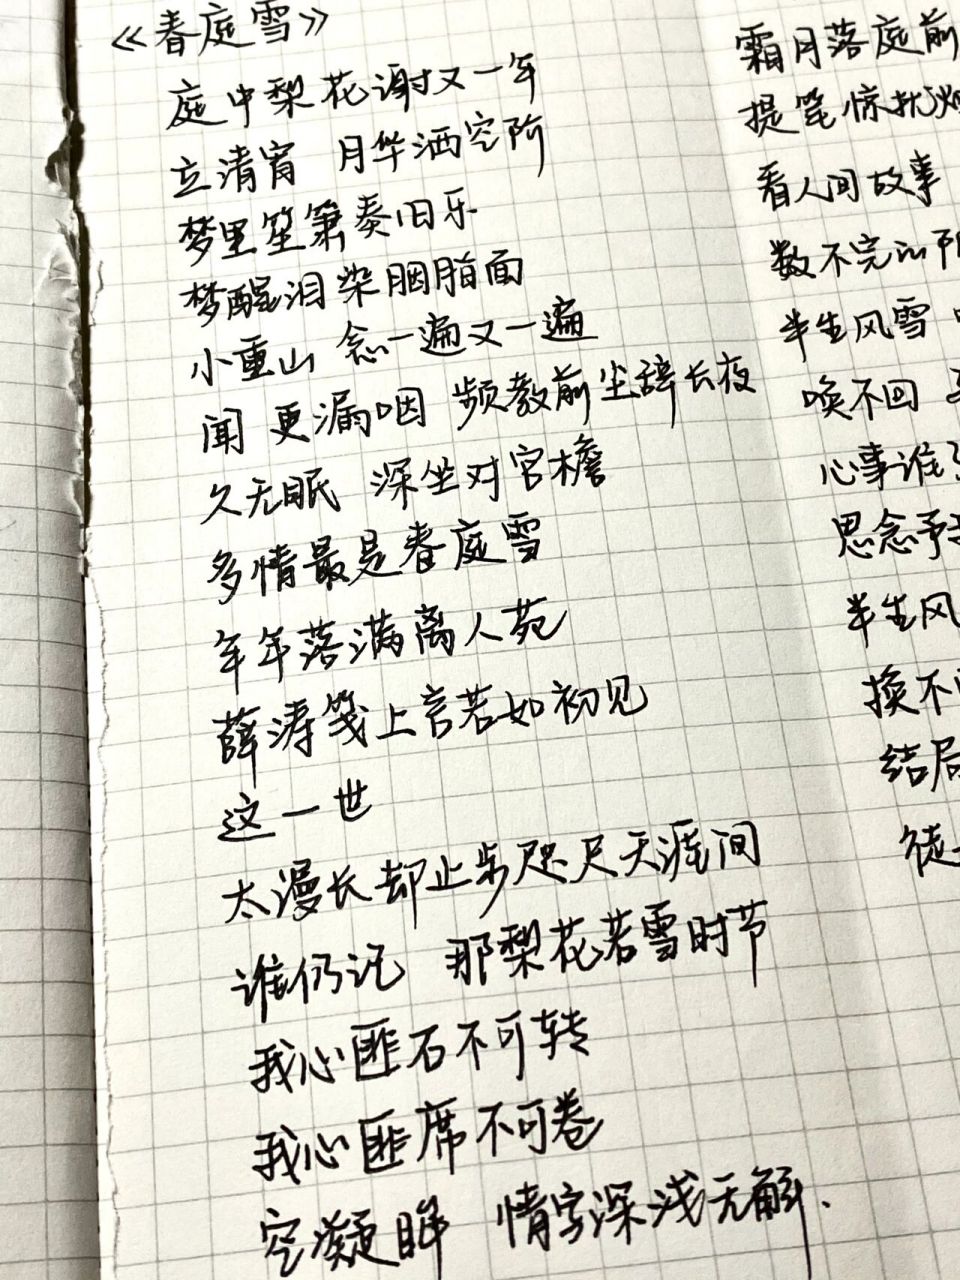 《春庭雪》
庭中梨花谢又一年
立清宵 月华洒空阶
梦里笙箫奏旧乐
梦醒泪染胭脂面
小重山 念一遍又一遍
闻 更漏咽 频教前尘辞长夜
久无眠 深坐对宫檐
多情最是春庭雪
年年落满离人苑
薛涛笺上言若如初见
这一世
太漫长却止步咫尺天涯间
谁仍记 那梨花若雪时节
我心匪石不可转
我心匪席不可卷
空凝眸 情字深浅无解.
霜月落庭前
提笔惊扰
看人间故事
数不完
半生风雪
唤不回
心事谁
思念予
半生风
换不
结局
徒